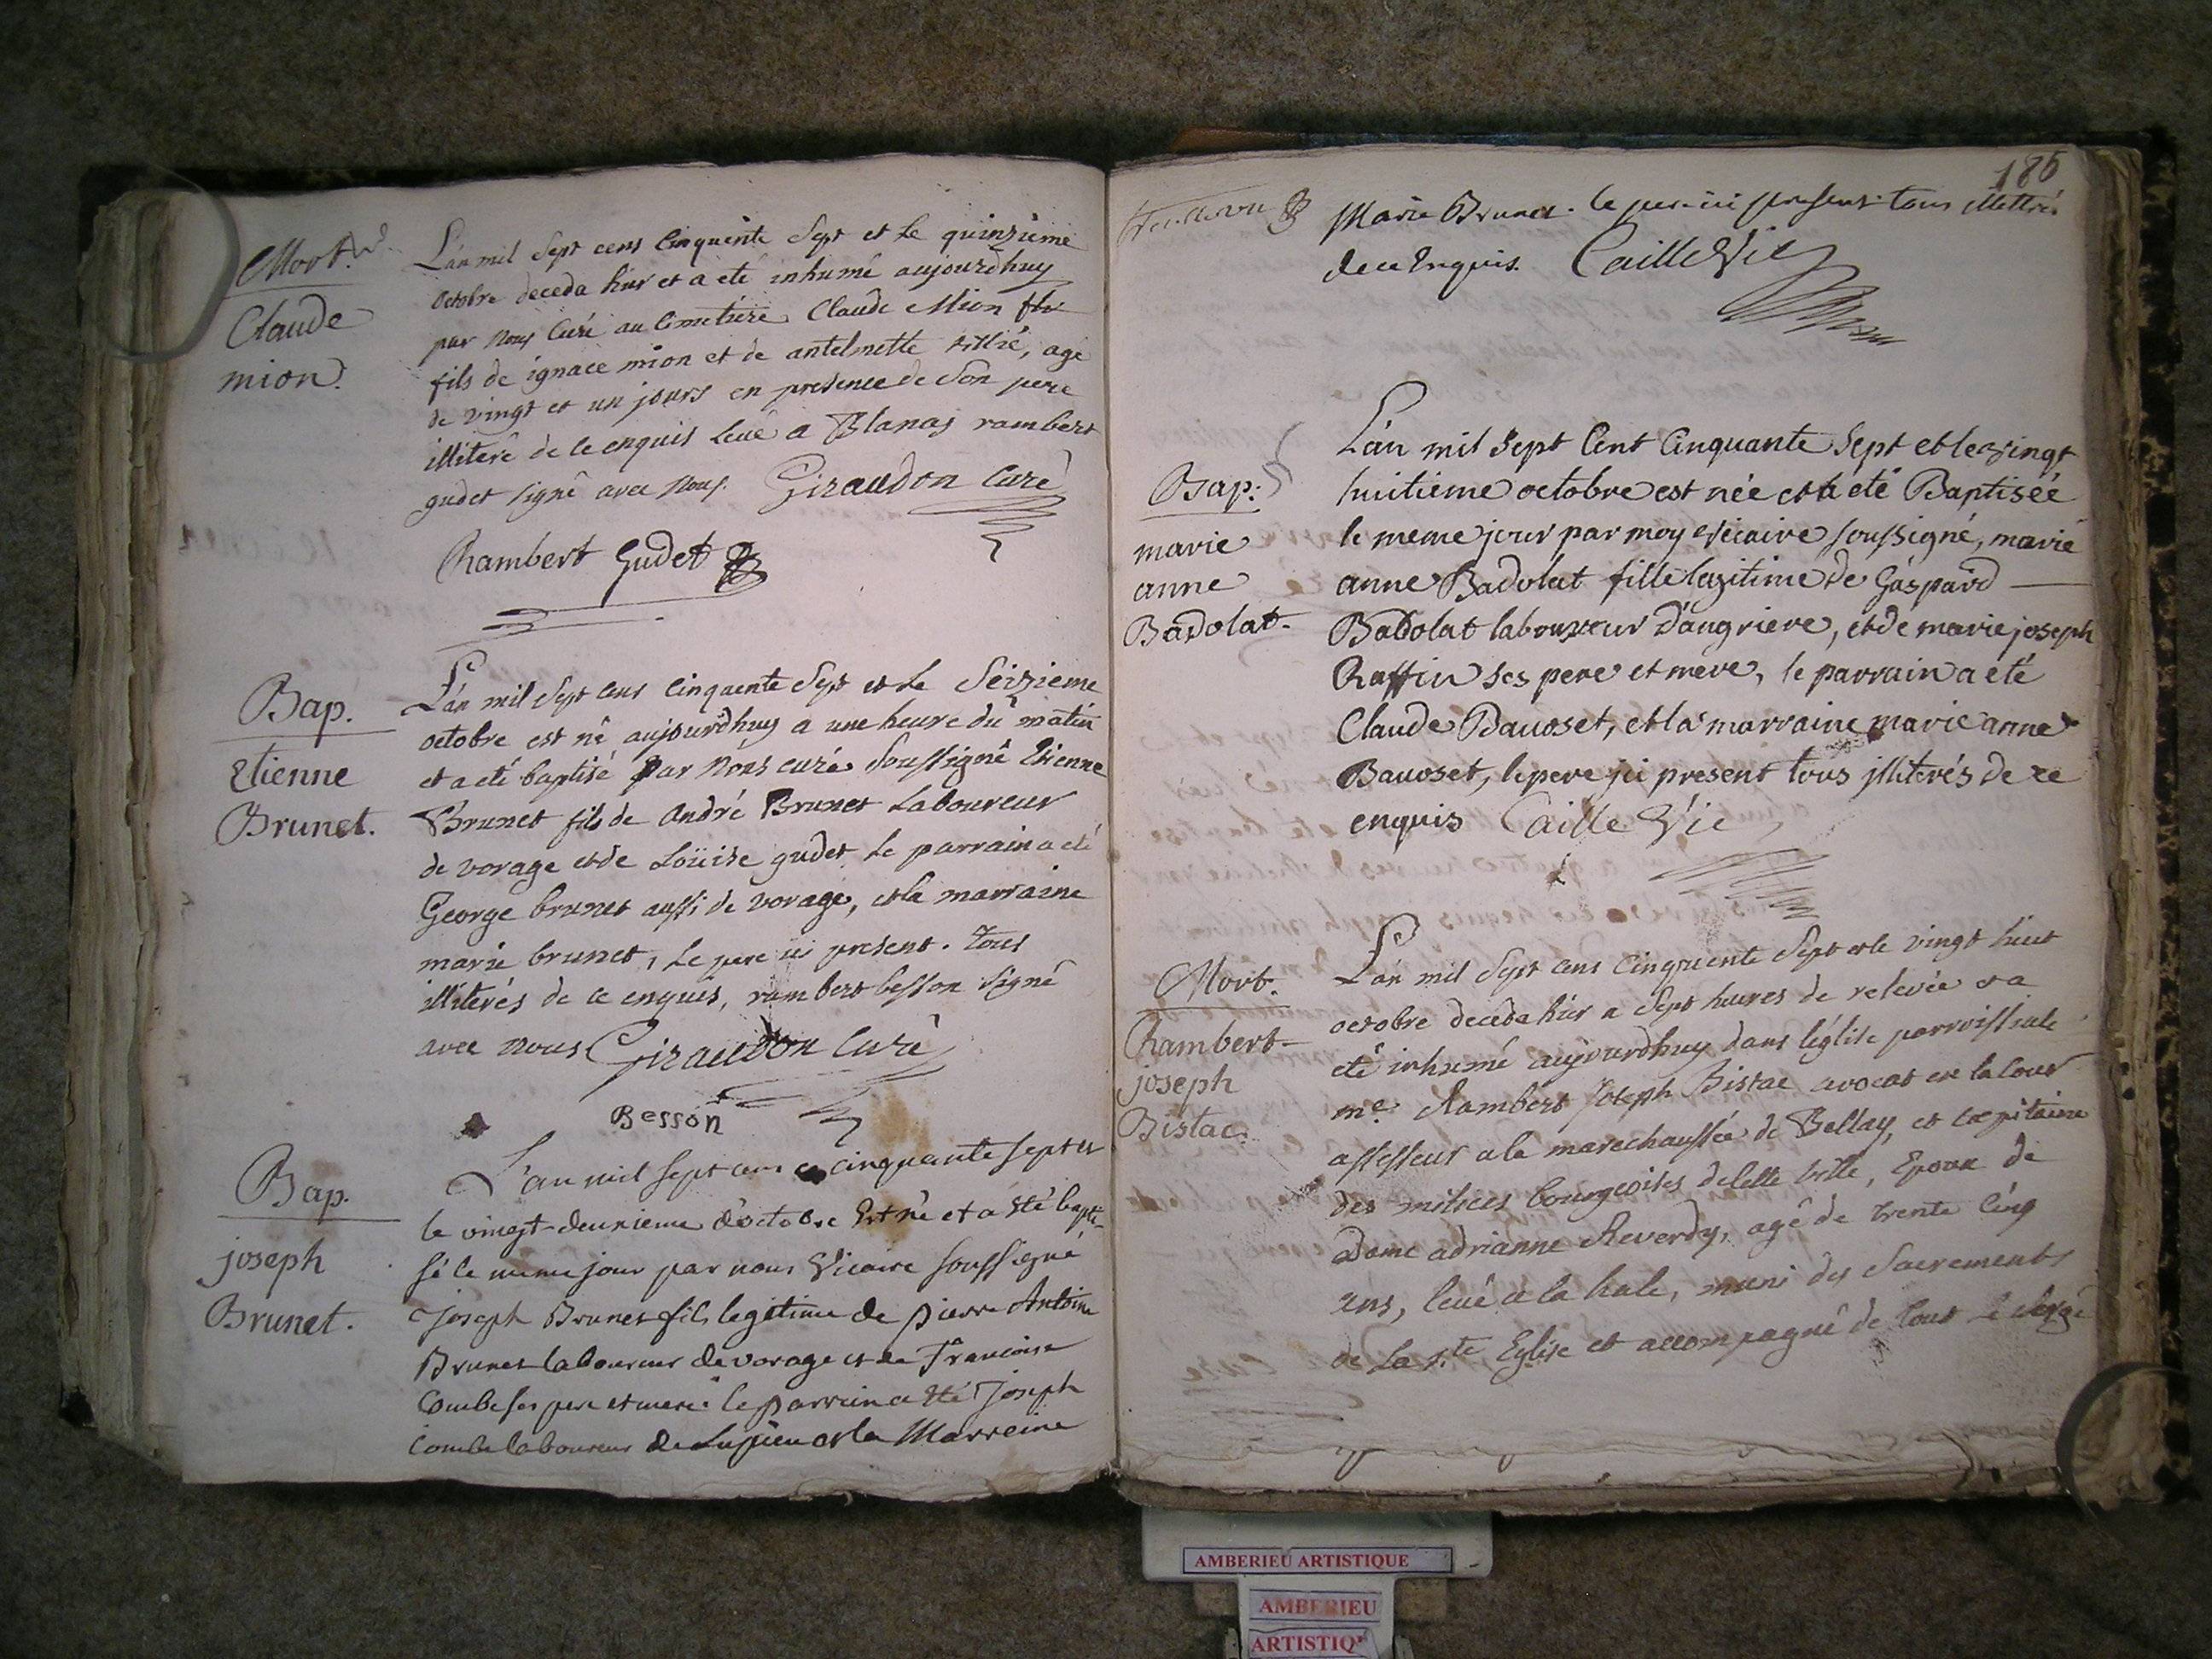 Mort.
Claude
mion.
L'an mil sept cens cinquente sept et le quinzieme
octobre deceda hier et a eté inhumé aujourdhuy
par nous curé au cimetiere Claude Mion
fils de ignace mion et de antelmette, agé
de vingt et un jours en presence de son pere
illiteré de ce enquis levé a Blanas rambert
gudet signé avec nous. Giraudon curé
Rambert Gudet
Bap.
Etienne
Brunet.
L'an mil sept cens cinquente sept et le seizieme
octobre est né aujourdhuy a une heure du matin
et a eté baptisé par nous curé soussigné Etienne
Brunet fils de andré Brunet Laboureur
de vorage et de Loüise gudet le parrain a eté
George brunet aussi de vorage, et la marraine
marie brunet, le pere ici present. Tous
illiterés de ce enquis, rambert besson signé
avec nous Giraudon curé
Besson
Bap.
joseph
Brunet.
L'an mil sept cens cinquante sept et
le vingt-deuxieme d'octobre Est né et a Eté bapti-
sé le meme jour par nous Vicaire soussigné
Joseph Brunet fils legitime de pierre Antoine
Brunet laboureur de vorage et de Francoise
Combe ses pere et mere. le parrain a Eté Joseph
Combe laboureur de Lupieu et la Marreine
186
Marie Brunet. le pere ici present. tous illettrés
de ce Enquis. Caille Vic
Bap:
marie
anne
Badolat.
L'an mil sept Cent Cinquante sept et le vingt
huitieme octobre est née et a eté Baptisée
le meme jour par moy vicaire soussigné, marie
anne Badolat fille legitime de Gaspard
Badolat laboureur d'angriere, et de marie joseph
Ruffin ses pere et mere, le parrain a eté
Claude Bauoset, et la marraine marie anne
Bauoset, le pere ici present tous illiterés de ce
enquis Caille Vic
Mort.
Rambert
joseph
Bistac.
L'an mil sept cens cinquente sept et le vingt huit
octobre deceda hier a sept heures de relevée et a
eté inhumé aujourdhuy dans léglise parroissiale
me. Rambert Joseph Bistac avocat en la cour
assesseur a la marechaussée de Bellay, et capitaine
des milices bourgeoises de cette ville, Epoux de
Dame adrianne Reverdy, agé de trente cinq
ans, levé a la hale, muni des Sacrements
de la ste Eglise et accompagné de tout le clergé
AMBERIEU ARTISTIQUE
AMBERIEU
ARTISTIQ